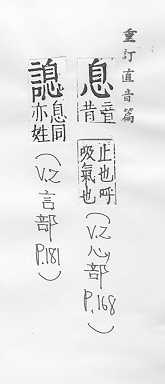 重訂直音篇
息 音昔 止也呼吸氣也 (V.2 心部 P.168)
諰 息同 亦姓 (V.2 言部 P.181)